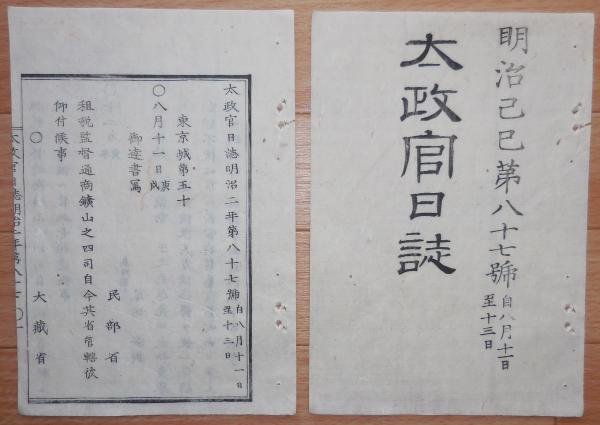 明治己巳第八十七號自八月十一日至十三日
太政官日誌
太政官日誌明治二年第八十七號自八月十一日至十三日
東京城第五十
〇八月十一日庚戌
御達書寫
民部省
租税監督通商鑛山之四司自今其省管轄被
仰付候事
〇
大藏省
太政官日誌明治二年第八十七